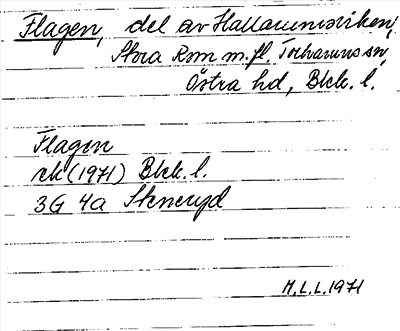 Flagen, del av Hallarumsviken,
Stora Rom m.fl, Torhamns sn,
Östra hd, Blek. l.
Flagen
ek (1971) Blek. l.
3G 4a Steneryd
M.L.L. 1971